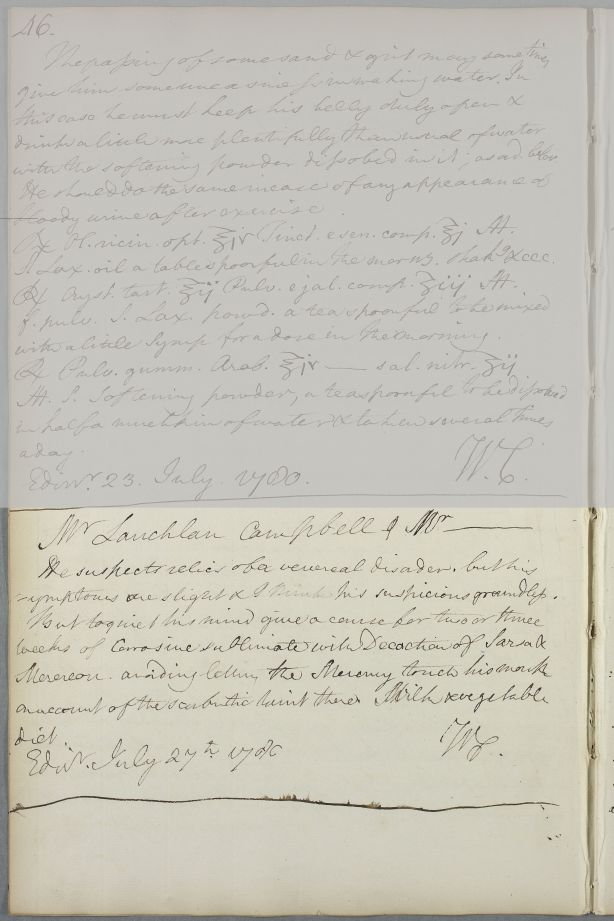 46.
The passing of some sand & grit may sometimes
give him some uneasiness in making water. In
this case he must keep his belly duly open &
drink a little more plentifully than usual of water
with the softening powder dissolved in it; as ad below
He should do the same in case of any appearance of
bloody urine after exercise.
℞ Ol. ricin. opt. ℥iv Tinct. e sen. comp. ℥j M.
S. Lax. oil a tablespoonful in the morng.
℞ Cryst. tart. ℥ij Pulv. e jal. comp. ʒiij M.
f. pulv. S. Lax. powd. a teaspoonful to be mixed
with a little syrup for a dose in the morning.
℞ Pulv. gumm. Arab. ℥iv — sal. nitr. ʒij
M. S. Softening powder, a teaspoonful to be dissolved
in half a mutchkin of water & taken several times
a day.
Edinr. 23. July. 1780. W.C.
Mr Lauchlan Campbell & Mr ———
He suspects relics of a venereal disader. but his
symptoms are slight & I think his suspicions groundless.
But to quiet his mind give a course for two or three
weeks of Corrosive sublimate with Decoction of Sarsa &
Mezereon. avoiding letting the Mercury touch his mouth
on account of the scorbutic taint there Milk & vegetable
diet
Edinr. July 27th 1780 WC.